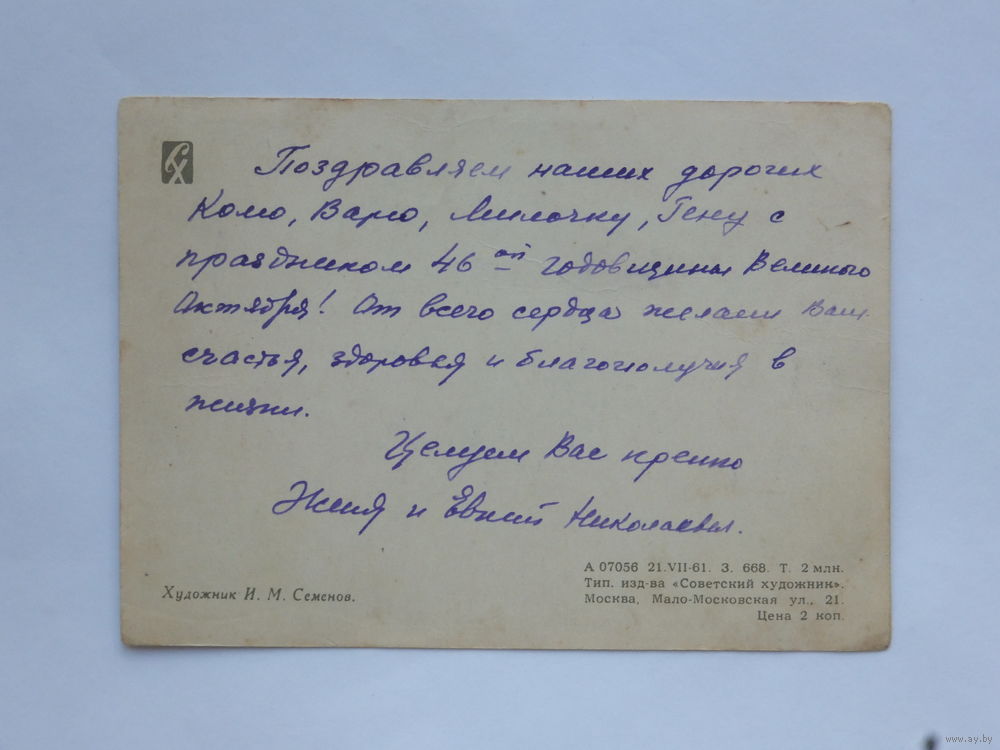 Поздравляем наших дорогих
Колю, Варю, Милочку, Гену с
праздником 46 ой годовщины Великого
Октября! От всего сердца желаем Вам
счастья, здоровья и благополучия в
жизни.
Целуем Вас крепко
и Николаевы.
Художник И. М. Семенов.
А 07056 21.VII-61. З. 668. Т. 2 млн.
Тип. изд-ва «Советский художник».
Москва, Мало-Московская ул., 21.
Цена 2 коп.
www.ay.by